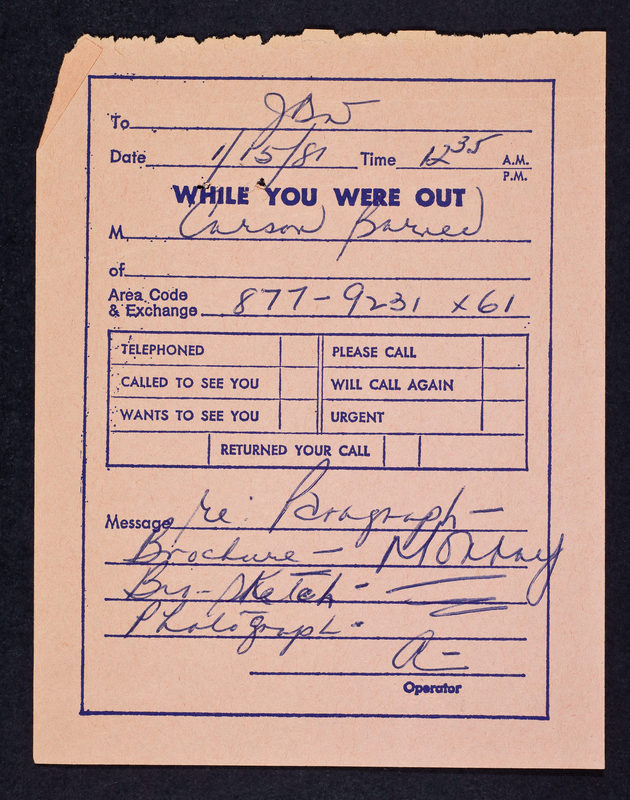 To JBW
Date 1/15/81 Time 12 35 A.M.
P.M.
WHILE YOU WERE OUT
M Carson Barnes
of
Area Code
& Exchange 877-9231 x61
TELEPHONED PLEASE CALL
CALLED TO SEE YOU WILL CALL AGAIN
WANTS TO SEE YOU URGENT
RETURNED YOUR CALL
Message re: Paragraph -
Brochure - Monday
Bio-sketch -
Photograph -
A-
Operator